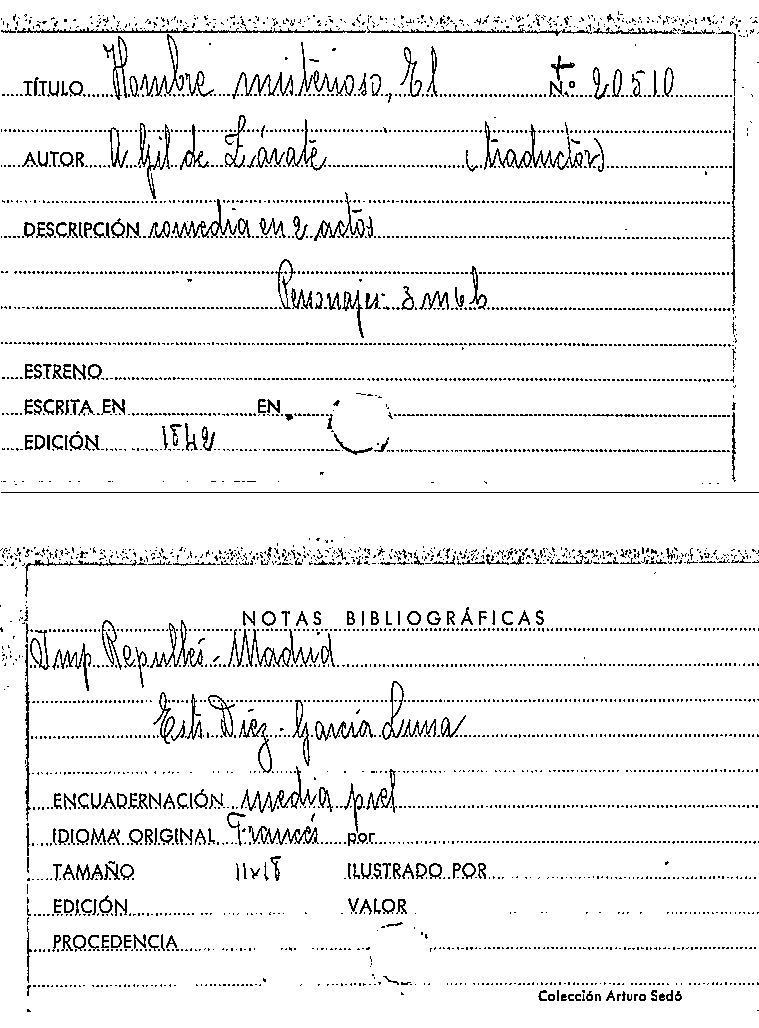 TÍTULO Hombre misterioso, El N.º 20510
AUTOR A Gil de Zárate (traductor)
DESCRIPCIÓN comedia en 2 actos
Personajes 3 m 6 h
ESTRENO
ESCRITA EN EN
EDICIÓN 1842
NOTAS BIBLIOGRÁFICAS
Imp Repullés - Madrid
Estr. Díez - García Luna
ENCUADERNACIÓN media piel
IDIOMA ORIGINAL Francés por
TAMAÑO 11x18 ILUSTRADO POR
EDICIÓN VALOR
PROCEDENCIA
Colección Arturo Sedó